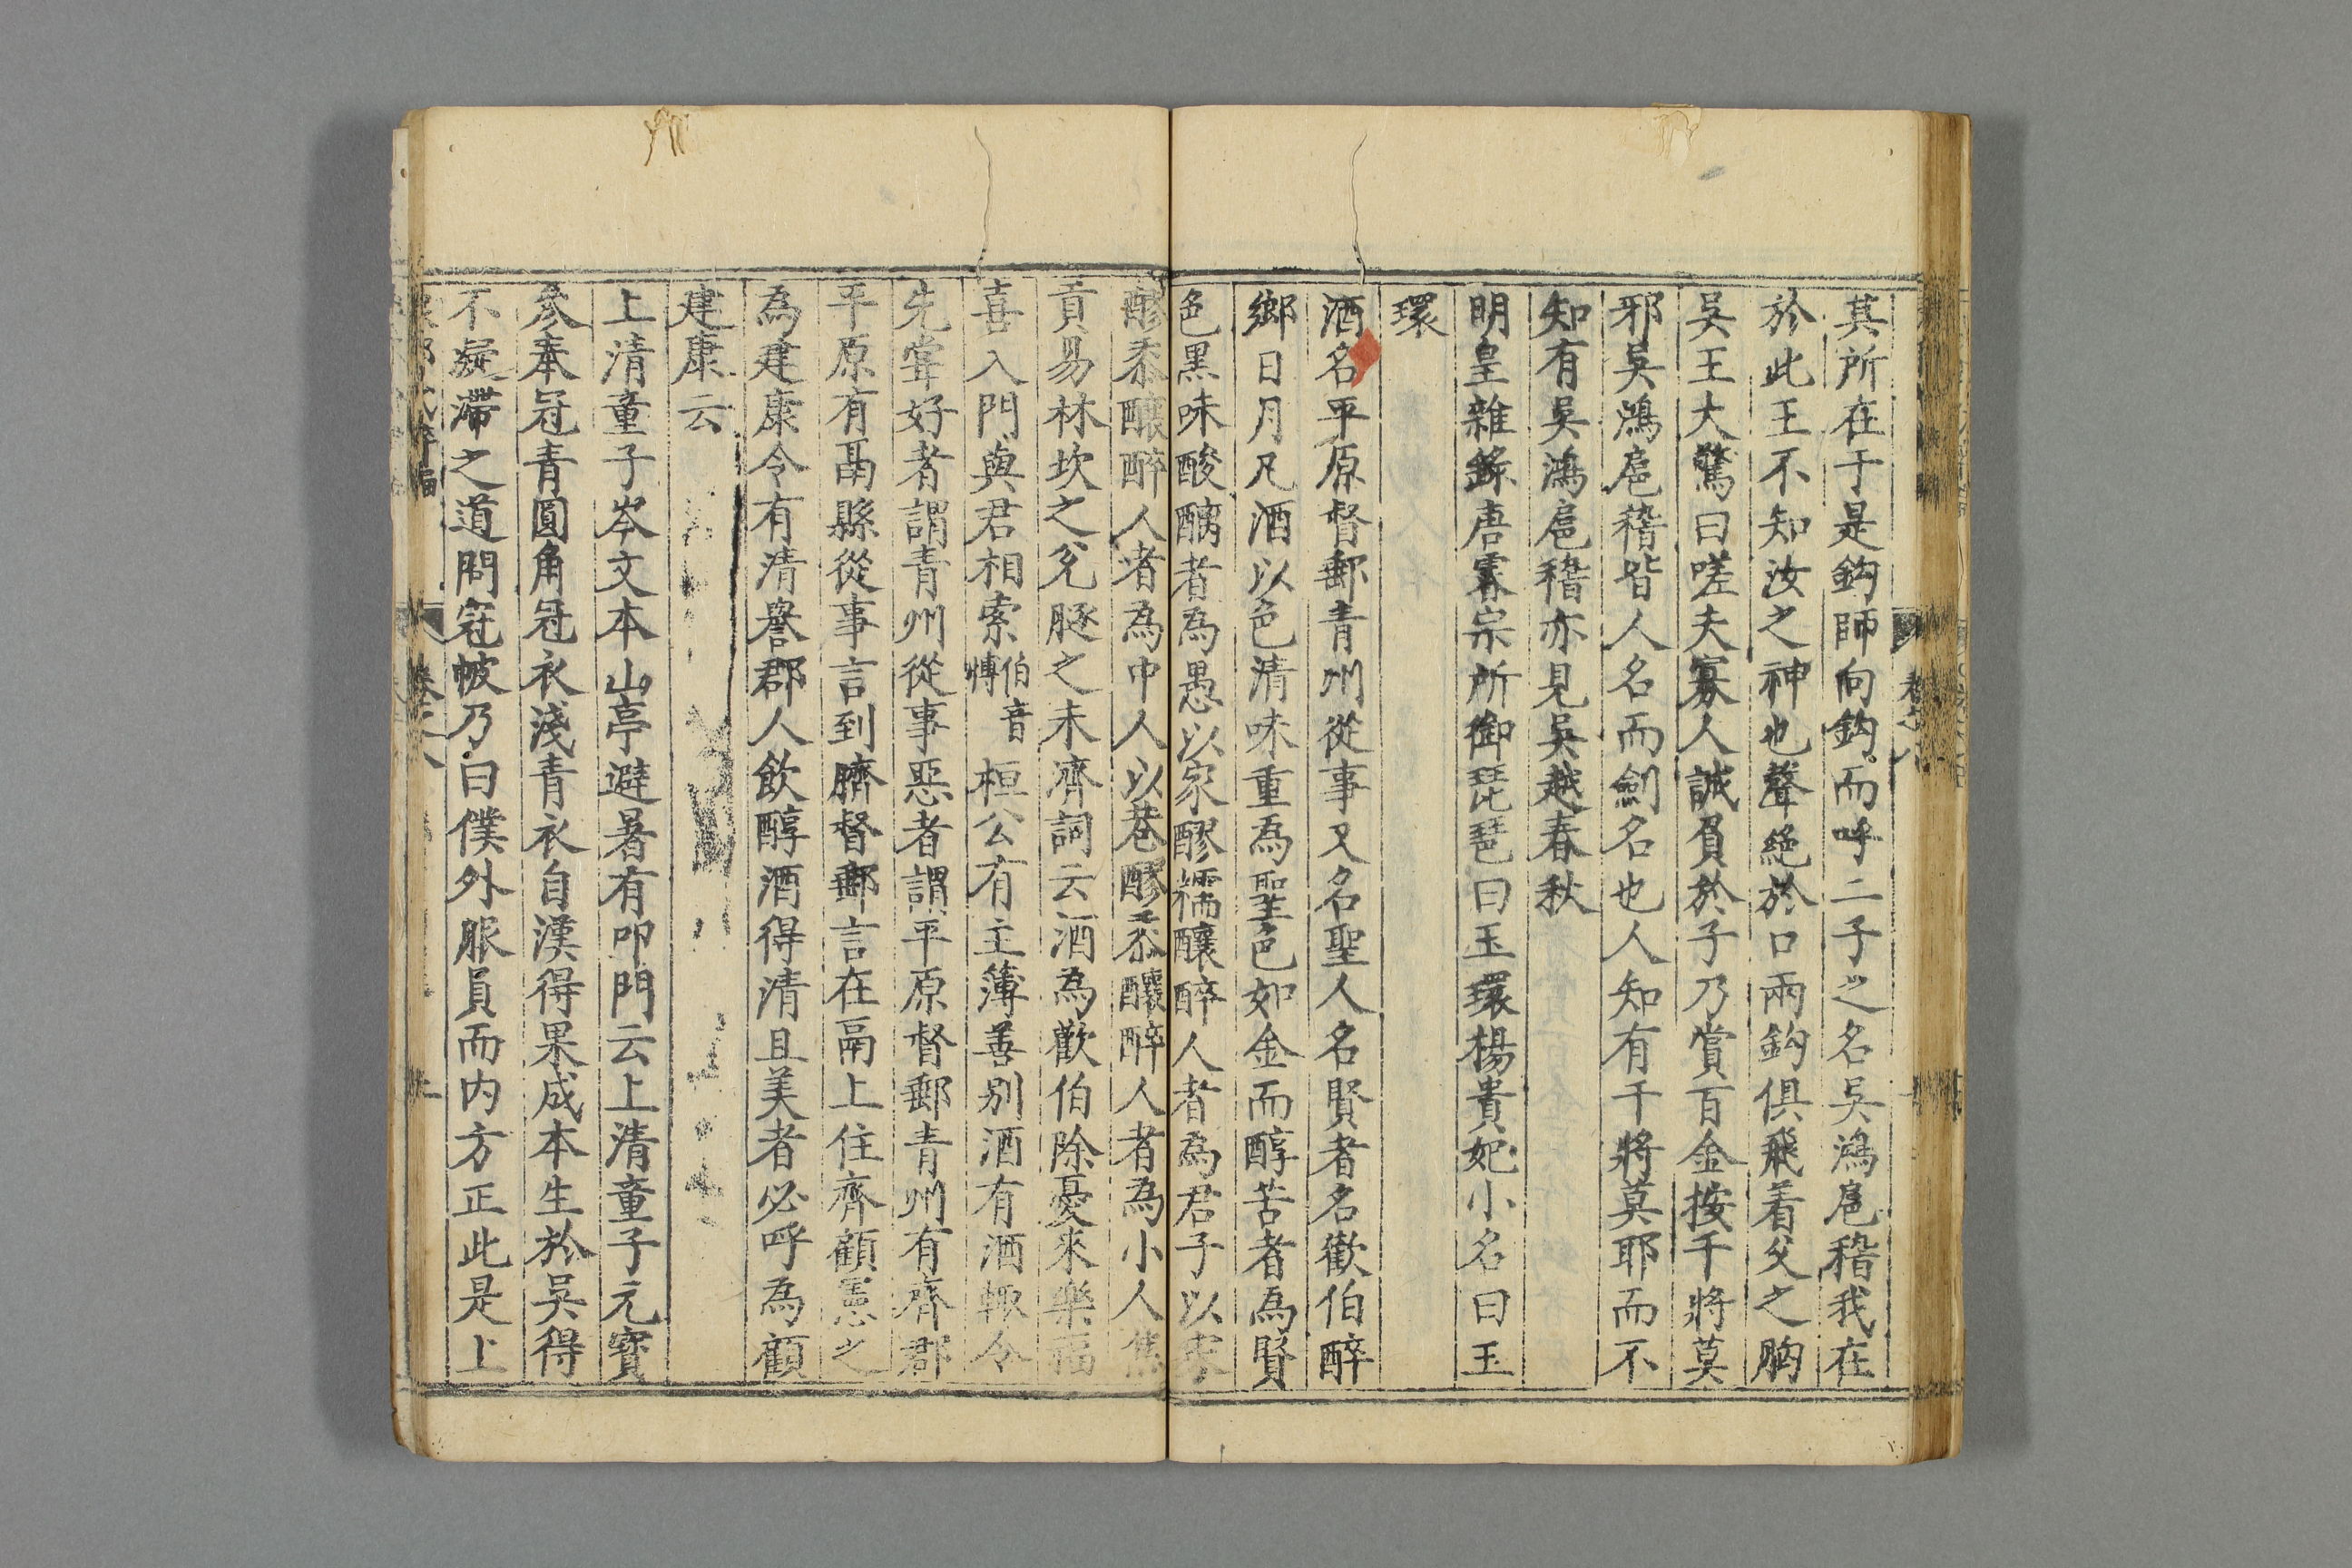 其所在于是鈎師向鈎而呼二子之名吳鴻扈稽我在
於此王不知汝之神也聲絕於口兩鈎俱飛着父之胸
吳王大驚曰嗟夫寡人誠負於子乃賞百金按干將莫
邪吳鴻扈稽皆人名而劍名也人知有干將莫耶而不
知有吳鴻扈稽亦見吳越春秋
明皇雜錄唐睿宗所御琵琶曰玉環楊貴妃小名曰玉
環
酒名平原督郵青州從事又名聖人名賢者名歡伯醉
鄉日月凡酒以色清味重為聖色如金而醇苦者為賢
色黑味酸醨者為愚以家醪糯釀醉人者為君子以家
醪黍釀醉人者為中人以巷醪黍釀醉人者為小人焦
貢易林坎之兊豚之未濟詞云酒為歡伯除憂來樂福
喜入門與君相索伯音愽桓公有主薄善别酒有酒輙令
先嘗好者謂青州從事惡者謂平原督郵青州有齊郡
平原有鬲縣從事言到臍督郵言在鬲上住齊顧憲之
為建康令有清譽郡人飲醇酒得清且美者必呼為顧
建康云
上清童子岑文本山亭避暑有叩門云上清童子元寳
參奉冠青圓角冠衣淺青衣自漢得果成本生於吳得
不凝滯之道問冠帔乃曰僕外服員而内方正此是上